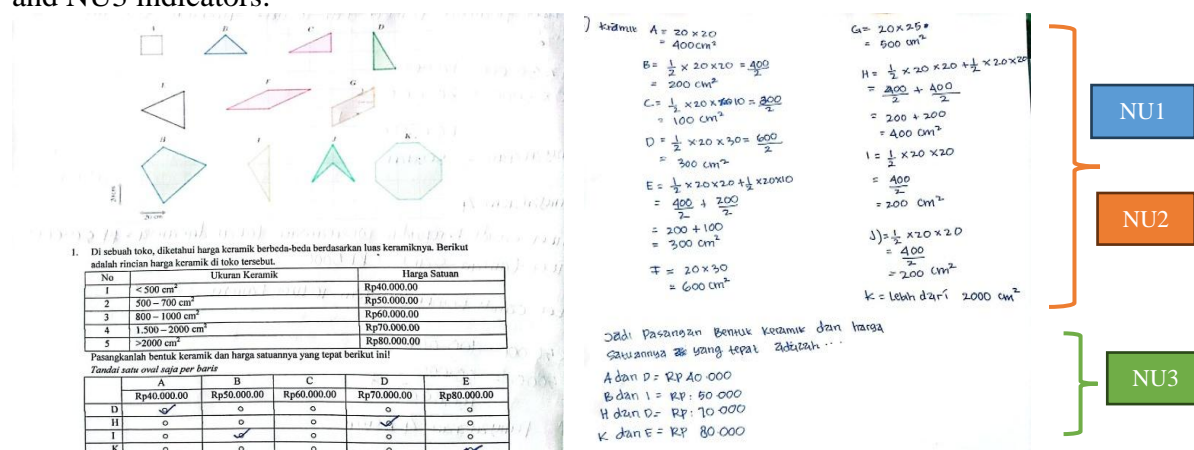 and NU3 indicators.
A
B
C
D
E
F
G
H
I
J
K
20 cm
20 cm
1. Di sebuah toko, diketahui harga keramik berbeda-beda berdasarkan luas keramiknya. Berikut
adalah rincian harga keramik di toko tersebut.
No Ukuran Keramik Harga Satuan
1 < 500 cm² Rp40.000.00
2 500 – 700 cm² Rp50.000.00
3 800 – 1000 cm² Rp60.000.00
4 1.500 – 2000 cm² Rp70.000.00
5 >2000 cm² Rp80.000.00
Pasangkanlah bentuk keramik dan harga satuannya yang tepat berikut ini!
Tandai satu oval saja per baris
A B C D E
Rp40.000.00 Rp50.000.00 Rp60.000.00 Rp70.000.00 Rp80.000.00
D
H
I
K
) kramik A = 20 × 20
= 400 cm²
B = 1/2 × 20 × 20 = 400/2
= 200 cm²
C = 1/2 × 20 × 10 = 200/2
= 100 cm²
D = 1/2 × 20 × 30 = 600/2
= 300 cm²
E = 1/2 × 20 × 20 + 1/2 × 20 × 10
= 400/2 + 200/2
= 200 + 100
= 300 cm²
F = 20 × 30
= 600 cm²
G = 20 × 25
= 500 cm²
H = 1/2 × 20 × 20 + 1/2 × 20 × 20
= 400/2 + 400/2
= 200 + 200
= 400 cm²
I = 1/2 × 20 × 20
= 400/2
= 200 cm²
J) = 1/2 × 20 × 20
= 400/2
= 200 cm²
K = Lebih dari 2000 cm²
Jadi Pasangan Bentuk Keramik dan harga
satuannya yang tepat adalah ...
A dan D = RP 40.000
B dan I = RP. 50.000
H dan D = RP. 70.000
K dan E = RP 80.000
NU1
NU2
NU3